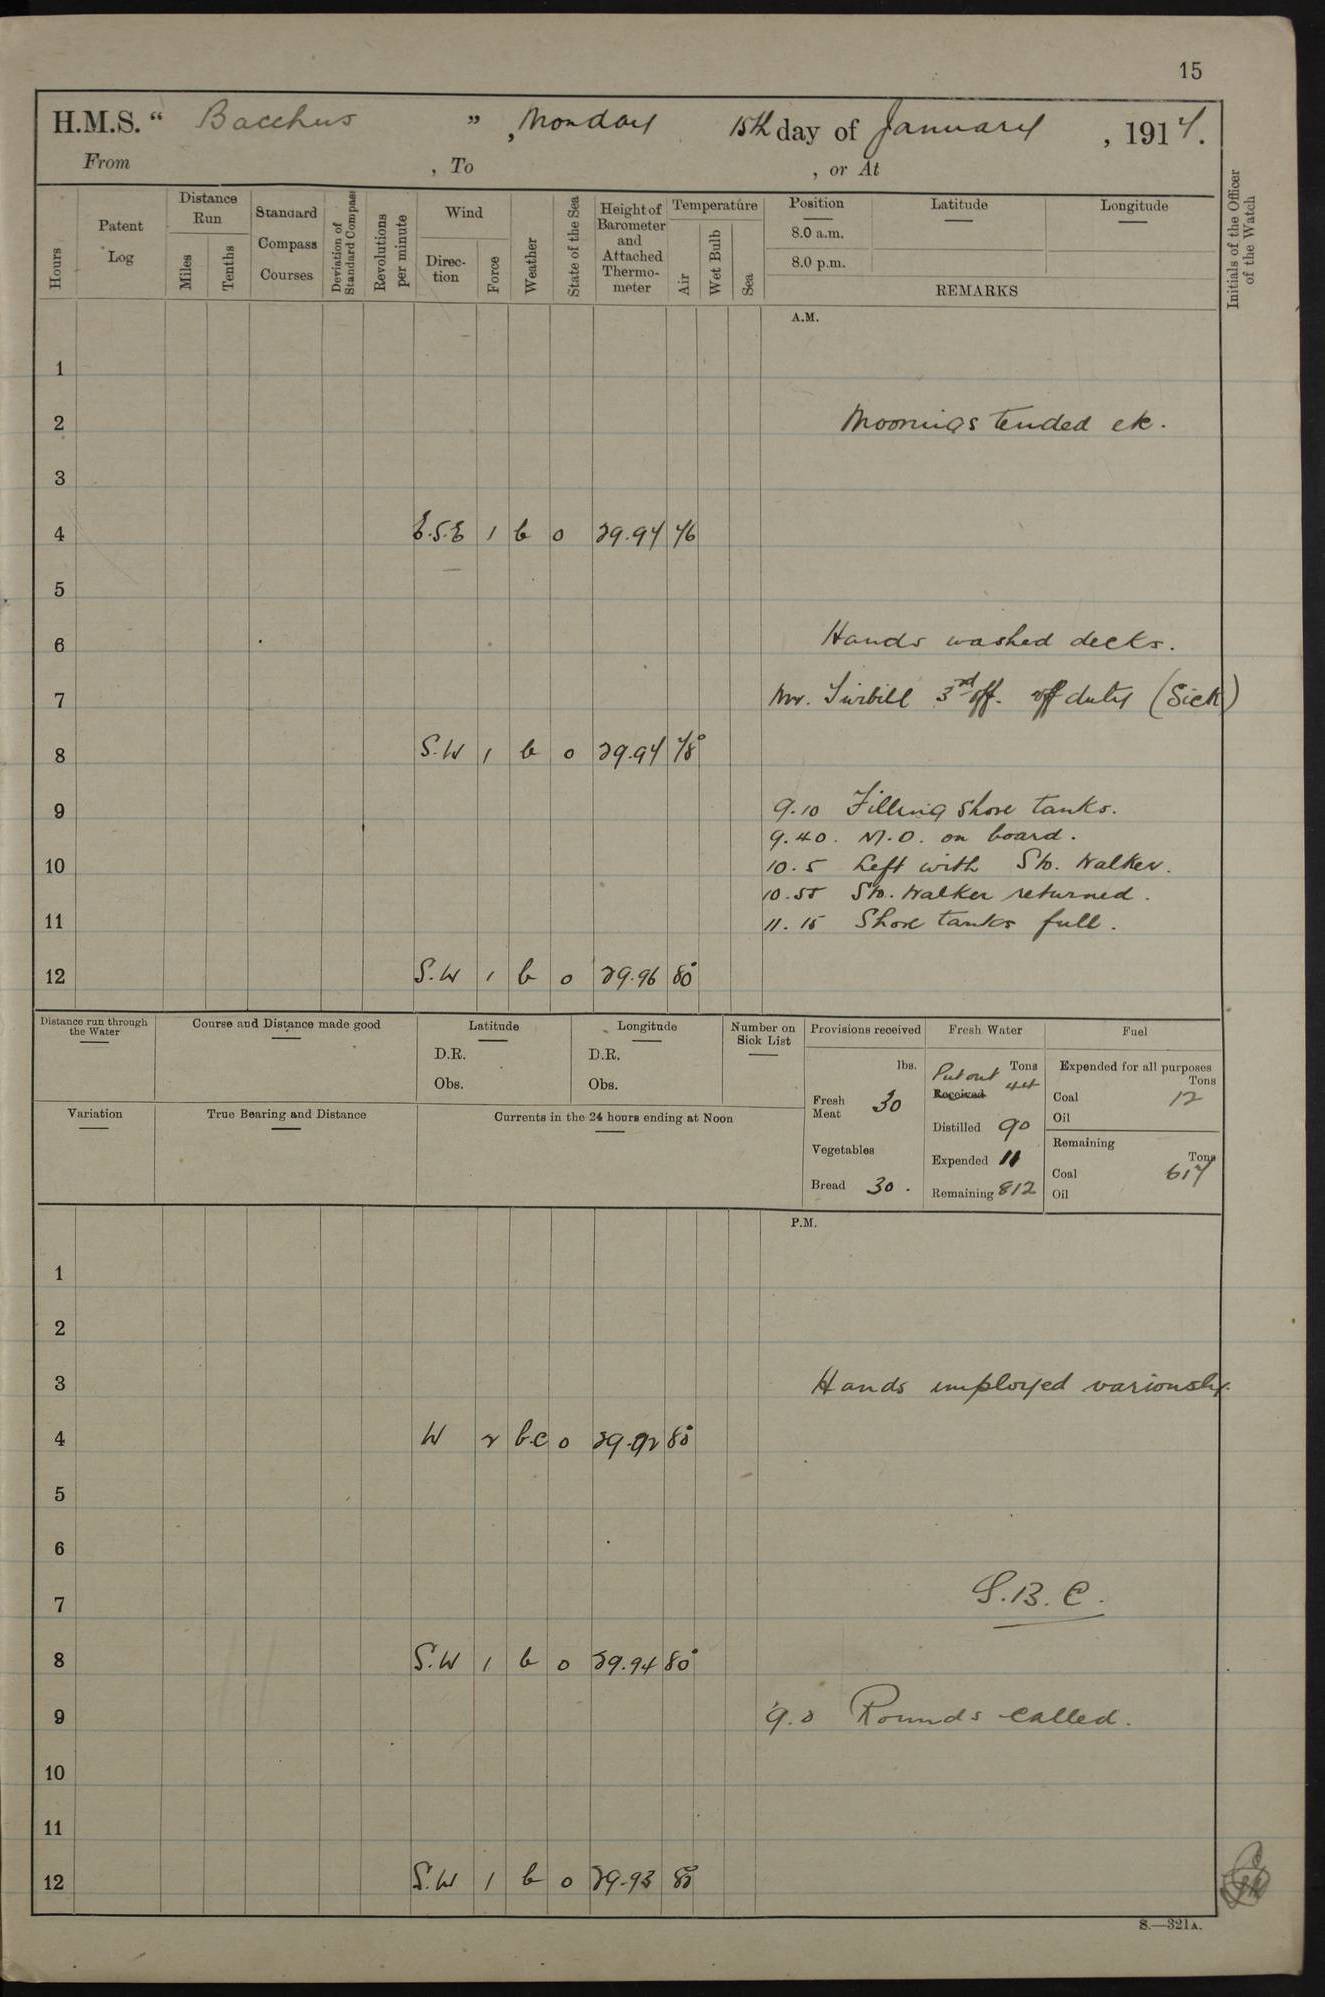 15
H.M.S. “ Bacchus ” , Monday 15th day of January , 1917.
From , To , or At
Hours
Patent Log
Distance Run
Miles
Tenths
Standard Compass Courses
Deviation of Standard Compass
Revolutions per minute
Wind
Direc-tion
Force
Weather
State of the Sea
Height of Barometer and Attached Thermo-meter
Temperature
Air
Wet Bulb
Sea
Position
8.0 a.m.
8.0 p.m.
Latitude
Longitude
REMARKS
Initials of the Officer of the Watch
A.M.
1
2 Moorings tended ek.
3
4 E.S.E 1 b 0 29.94 76
5
6 Hands washed decks.
7 Mr. 3rd off. off duty (Sick)
8 S.W 1 b 0 29.94 78°
9 9.10 Filling Shore tanks.
9.40. M.O. on board.
10 10.5 Left with Sto. Walker.
10.55 Sto. Walker returned.
11 11.15 Shore tanks full.
12 S.W 1 b 0 29.96 80°
Distance run through the Water
Course and Distance made good
Latitude
D.R.
Obs.
Longitude
D.R.
Obs.
Number on Sick List
Provisions received
lbs.
Fresh Meat 30
Vegetables
Bread 30.
Fresh Water
Tons
Put out 44
Received
Distilled 90
Expended 11
Remaining 812
Fuel
Expended for all purposes
Tons
Coal 12
Oil
Remaining
Tons
Coal 617
Oil
Variation
True Bearing and Distance
Currents in the 24 hours ending at Noon
P.M.
1
2
3 Hands employed variously.
4 W 2 b.c 0 29.92 80°
5
6
7 S.B.C.
8 S.W 1 b 0 29.94 80°
9 9.0 Rounds called.
10
11
12 S.W 1 b 0 29.93 80
S.—321A.